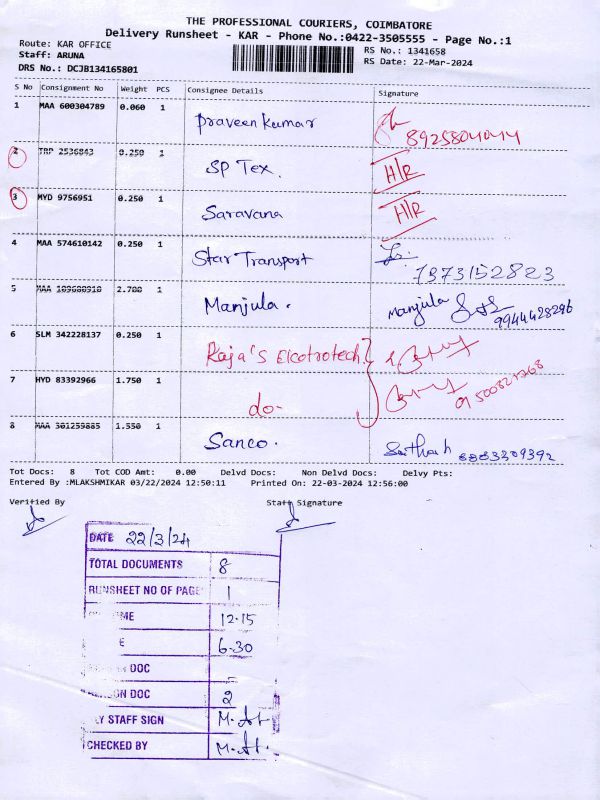 THE PROFESSIONAL COURIERS, COIMBATORE
Delivery Runsheet - KAR - Phone No.:0422-3505555 - Page No.:1
Route: KAR OFFICE
RS No.: 1341658
Staff: ARUNA
RS Date: 22-Mar-2024
DRS No.: DCJB134165801
S No Consignment No Weight PCS Consignee Details Signature
1 MAA 600304789 0.060 1
Praveen Kumar
8925804044
2 TRP 2536843 0.250 1
SP Tex.
H/R
3 MYD 9756951 0.250 1
Saravana
H/R
4 MAA 574610142 0.250 1
Star Transport
7373152823
5 MAA 2.700 1
Manjula.
Manjula
9944428296
6 SLM 342228137 0.250 1
Raja's Elcotrotech
7 HYD 83392966 1.750 1
do-
8 MAA 301259885 1.550 1
Sanco.
8883309392
Tot Docs: 8 Tot COD Amt: 0.00 Delvd Docs: Non Delvd Docs: Delvy Pts:
Entered By :MLAKSHMIKAR 03/22/2024 12:50:11 Printed On: 22-03-2024 12:56:00
Verified By Staff Signature
DATE 22/3/24
TOTAL DOCUMENTS 8
RUNSHEET NO OF PAGE 1
12.15
6.30
DOC
DOC 2
STAFF SIGN
CHECKED BY